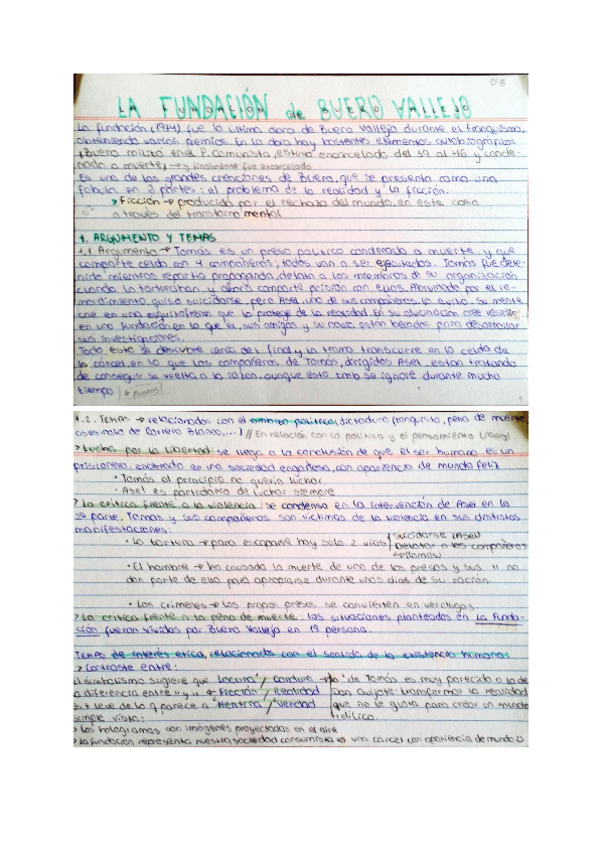 LA FUNDACIÓN de BUERO VALLEJO
La fundación (1974) fue la última obra de Buero Vallejo durante el franquismo,
obteniendo varios premios. En la obra hay bastantes elementos autobiográficos
(Buero militó en el P. Comunista, estuvo encarcelado del 39 al 46 y conde-
nado a muerte) → y finalmente fue excarcelado
Es una de las grandes creaciones de Buero, que se presenta como una
fábula en 2 partes: el problema de la realidad y la ficción.
> Ficción → producido por el rechazo del mundo, en este caso
a través del transtorno mental
1. ARGUMENTO Y TEMAS
1.1 Argumento → Tomás es un preso político condenado a muerte y que
comparte celda con 4 compañeros, todos van a ser ejecutados. Tomás fue dete-
nido mientras repartía propaganda, delata a los miembros de su organización
cuando lo torturaban y ahora comparte prisión con ellos. Abrumado por el re-
mordimiento, quiso suicidarse, pero Asel, uno de sus compañeros lo evitó. Su mente
cae en una esquizofrenia que lo protege de la realidad. En su alucinación cree residir
en una fundación en la que él, sus amigos y su novia están becados para desarrollar
sus investigaciones.
Todo esto se descubre cerca del final y la trama transcurre en la celda de
la cárcel, en la que los compañeros de Tomás, dirigidos Asel, están tratando
de conseguir su vuelta a la razón, aunque esto tmb se ignore durante mucho
tiempo
1.2. TEMAS → relacionados con el ámbito político, dictadura franquista, pena de muerte,
asesinato de Carrero Blanco,...) // En relación con la política y el pensamiento liberal
> Lucha por la libertad: se llega a la conclusión de que el ser humano es un
prisionero, encerrado en una sociedad engañosa, con apariencia de mundo feliz
· Tomás al principio no quería luchar.
· Asel es partidario de luchar siempre
> La crítica frente a la violencia: se condensa en la intervención de Asel en la
2ª parte. Tomás y sus compañeros son víctimas de la violencia en sus distintas
manifestaciones:
· La tortura → para escapar hay solo 2 vías
Suicidarse (Asel)
Delatar a los compañeros
(Tomás)
· El hambre → ha causado la muerte de uno de los presos y sus " no
dan parte de ello para apropiarse durante unos días de su ración
· Los crímenes → Los propios presos se convierten en verdugos
> La crítica frente a la pena de muerte: las situaciones planteadas en La Funda-
ción fueron vividas por Buero Vallejo en 1ª persona.
Temas de interés ético, relacionados con el sentido de la existencia humana
> Contraste entre:
El simbolismo sugiere que Locura / Cordura → lo de Tomás es muy parecido a la de
la diferencia entre " y " Ficción / Realidad Don Quijote: transformar la realidad
es + leve de lo q parece a Mentira / Verdad que no le gusta para crear un mundo
simple vista: idílico.
> Los hologramas son imágenes proyectadas en el aire
> La fundación representa nuestra sociedad consumista es una cárcel con apariencia de mundo